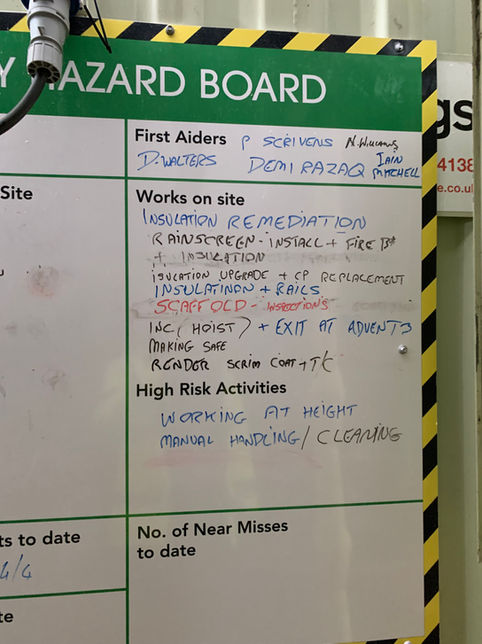 Y HAZARD BOARD
First Aiders P SCRIVENS N. WILLIAMS
D. WALTERS DEMI RAZAQ IAIN MITCHELL
Site
Works on site
INSULATION REMEDIATION
RAINSCREEN - INSTALL + FIRE
+ INSULATION
ISULATION UPGRADE + CP REPLACEMENT
INSULATINON + RAILS
SCAFFOLD - INSPECTIONS
INC (HOIST) + EXIT AT
MAKING SAFE
RENDER SCRIM COAT + T/C
High Risk Activities
WORKING AT HEIGHT
MANUAL HANDLING / CLEANING
ts to date
4/4
No. of Near Misses
to date
te
gs
4138
e.co.uk